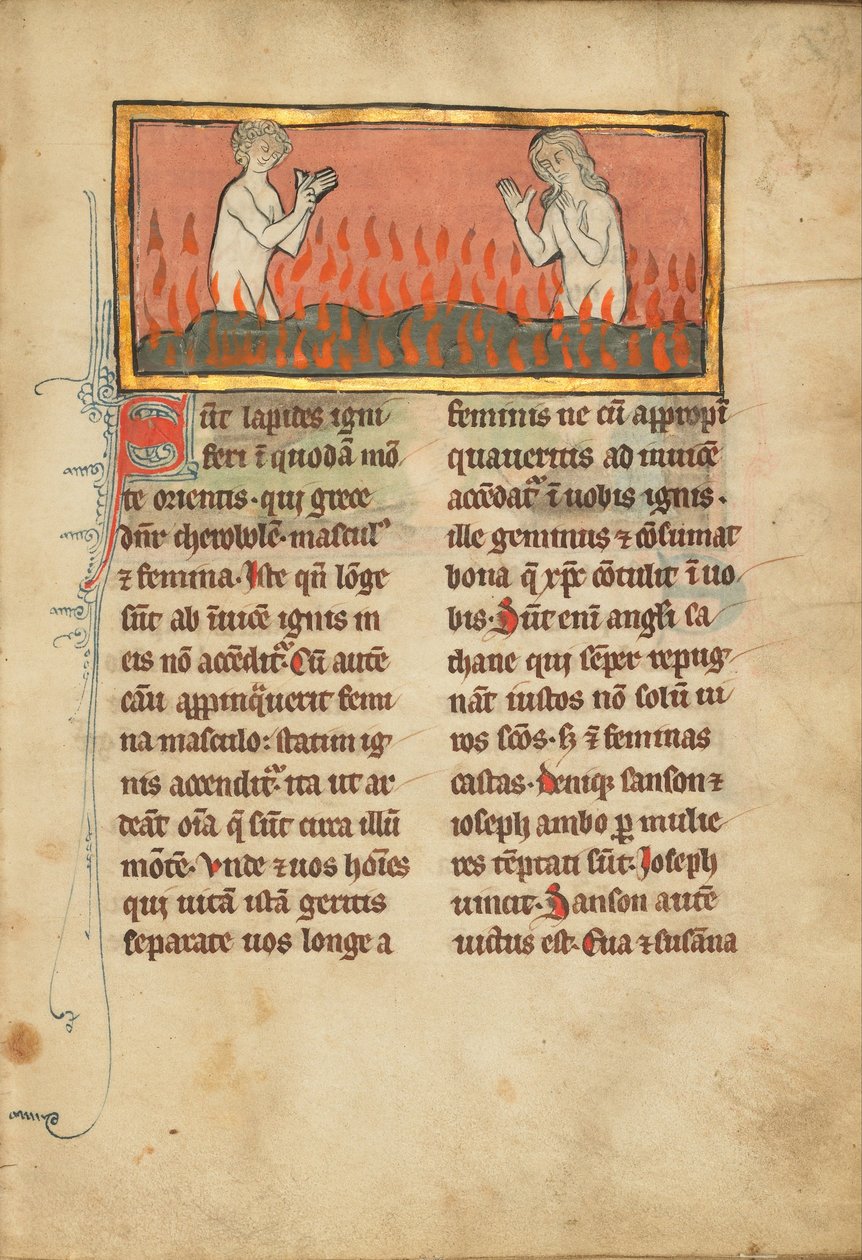 Sūt lapides igni
feri ī quodā mō
te orientis · qui grece
dn̄r cherobolē · masculꝰ
⁊ femina · Iste qn̄ lōge
sūt ab īuicē ignis in
eis nō accēdit᷑ · Cū autē
cāu appinq̄uerit femi
na masculo : statim ig
nis accendit᷑ · ita ut ar
deāt oīa q̄ sūt circa illū
mōtē · Vnde ⁊ uos hoīes
qui uitā istā geritis
separate uos longe a
feminis ne cū appropī
quaueritis ad inuicē
accēdat᷑ ī uobis ignis ·
ille geminus ⁊ cōsumat
bona q̄ xp̄c cōtulit ī uo
bis · Sūt enī angłi sa
thane qui sēper repug
nāt iustos nō solū ui
ros sc̄os · ⱨ ⁊ feminas
castas · Deniqꝫ sanson ⁊
ioseph ambo ꝑ mulie
res tēptati sūt · Joseph
uincit · Sanson autē
uictus est · Eua ⁊ susāna